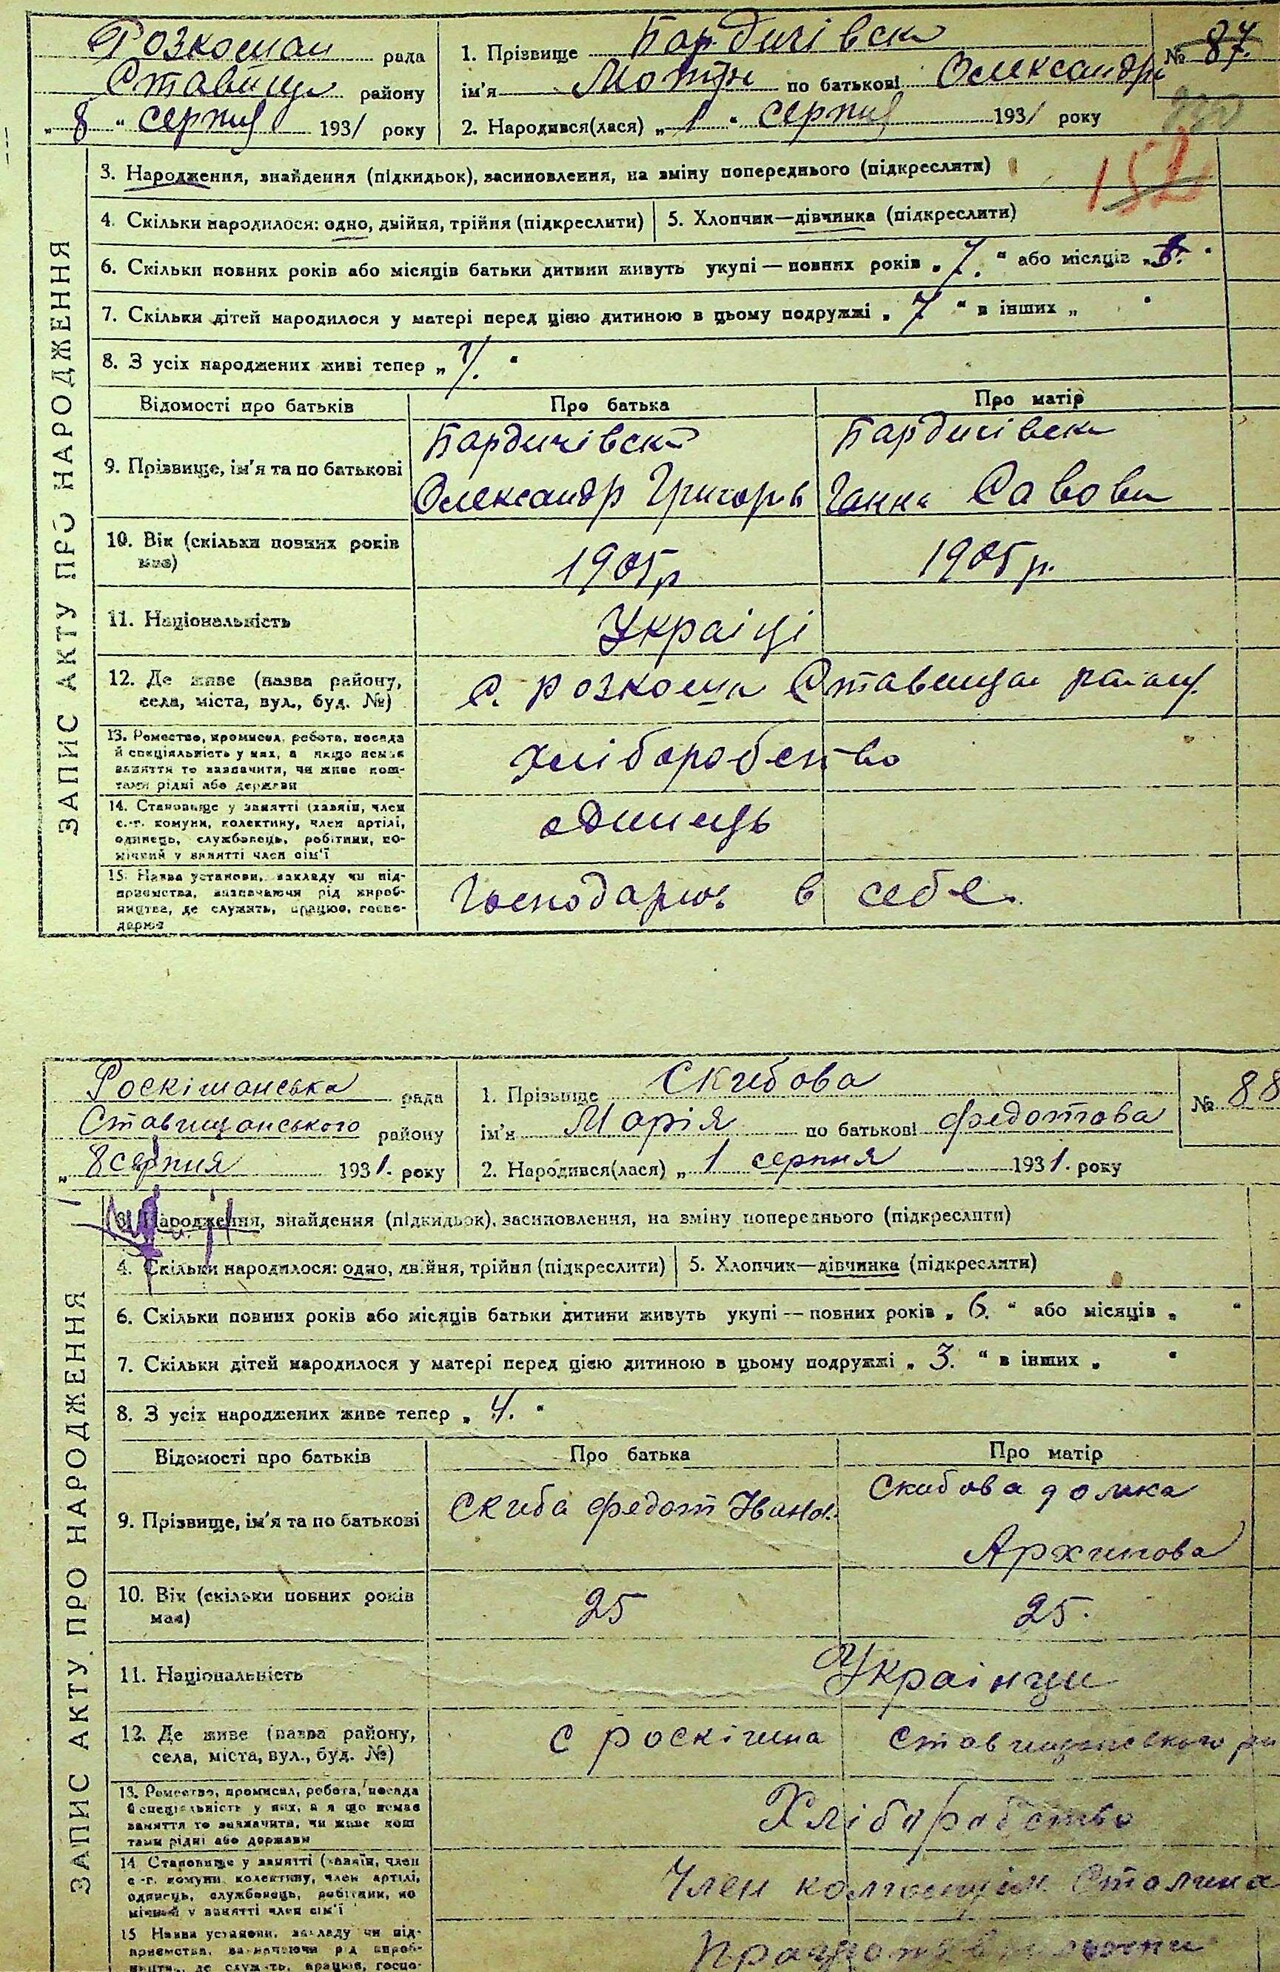 ЗАПИС АКТУ ПРО НАРОДЖЕННЯ
Розкошан рада
Ставищ району
„ 8 “ серпня 1931 року
1. Прізвище Бардичівска
ім'я Мотря по батькові Олександр
2. Народився(лася) „ 1 “ серпня 1931 року
№ 87.
152
3. Народження, знайдення (підкидьок), засиновлення, на зміну попереднього (підкреслити)
4. Скільки народилося: одно, двійня, трійня (підкреслити)
5. Хлопчик—дівчинка (підкреслити)
6. Скільки повних років або місяців батьки дитини живуть укупі — повних років „ 7. “ або місяців „ “
7. Скільки дітей народилося у матері перед цією дитиною в цьому подружжі „ 7 “ в інших „ “
8. З усіх народжених живі тепер „ “
Відомості про батьків Про батька Про матір
9. Прізвище, ім'я та по батькові
Бардичівск
Олександр Григоров
Бардичівск
Ганна Савова
10. Вік (скільки повних років має)
1905р 1905р.
11. Національність
Україці
12. Де живе (назва району,
села, міста, вул., буд. №)
с. розкоша Ставищан району
13. Ремество, промисел, робота, посада
й спеціяльність у них, а якщо немає
заняття то зазначити, чи живе кош-
тами рідні або держави
хліборобство
14. Становище у занятті (хазяїн, член
с.-г. комуни, колективу, член артілі,
одинець, службовець, робітник, по-
мічний у занятті член сім'ї
одинець
15. Назва установи, закладу чи під-
приємства, визначаючи рід вироб-
ництва, де служить, працює, госпо-
дарює
Господарює в себе.
ЗАПИС АКТУ ПРО НАРОДЖЕННЯ
Роскішанська рада
Ставищанського району
„ 8 серпня 1931. року
1. Прізвище Скибова
ім'я Марія по батькові Федотова
2. Народився(лася) „ 1 серпня 1931. року
№ 88
3. Народження, знайдення (підкидьок), засиновлення, на зміну попереднього (підкреслити)
4. Скільки народилося: одно, двійня, трійня (підкреслити)
5. Хлопчик—дівчинка (підкреслити)
6. Скільки повних років або місяців батьки дитини живуть укупі — повних років „ 6. “ або місяців „ “
7. Скільки дітей народилося у матері перед цією дитиною в цьому подружжі „ 3. “ в інших „ “
8. З усіх народжених живе тепер „ 4. “
Відомості про батьків Про батька Про матір
9. Прізвище, ім'я та по батькові
Скиба Федот Іванов.
Скибова домка
Архипова
10. Вік (скільки повних років має)
25 25.
11. Національність
Українци
12. Де живе (назва району,
села, міста, вул., буд. №)
с роскішна Ставищанського ра
13. Ремество, промисел, робота, посада
й спеціяльність у них, а якщо немає
заняття то зазначити, чи живе кош
тами рідні або держави
Хліборобство
14. Становище у занятті (хазяїн, член
с.-г. комуни, колективу, член артілі,
одинець, службовець, робітник, по
мічний у занятті член сім'ї
Член Сталина
15 Назва установи, закладу чи під-
приємства, визначаючи рід вироб-
ництва, де служить, працює, госпо-